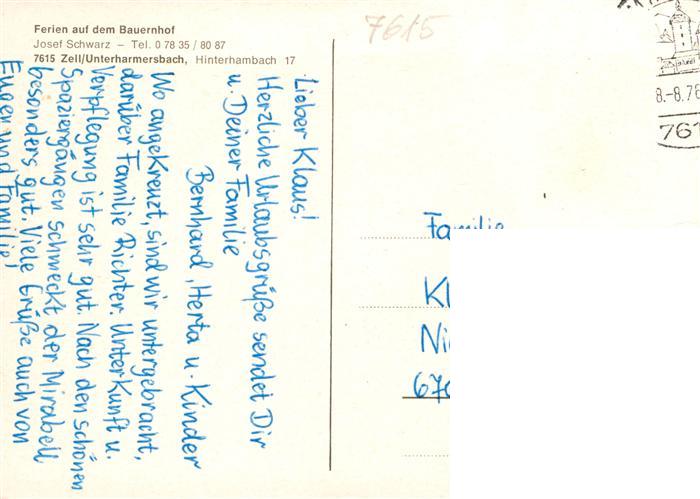 Ferien auf dem Bauernhof
Josef Schwarz – Tel. 0 78 35 / 80 87
7615 Zell/Unterharmersbach, Hinterhambach 17
7615
Lieber Klaus!
Herzliche Urlaubsgrüße sendet Dir
u. Deiner Familie
Bernhard, Herta u. Kinder
Wo angekreuzt, sind wir untergebracht,
darüber Familie Richter. Unterkunft u.
Verpflegung ist sehr gut. Nach den schönen
Spaziergängen schmeckt der Mirabell
besonders gut. Viele Grüße auch von
Eugen und Familie!
8.-8.76
761
Familie
Kl
Ni
670